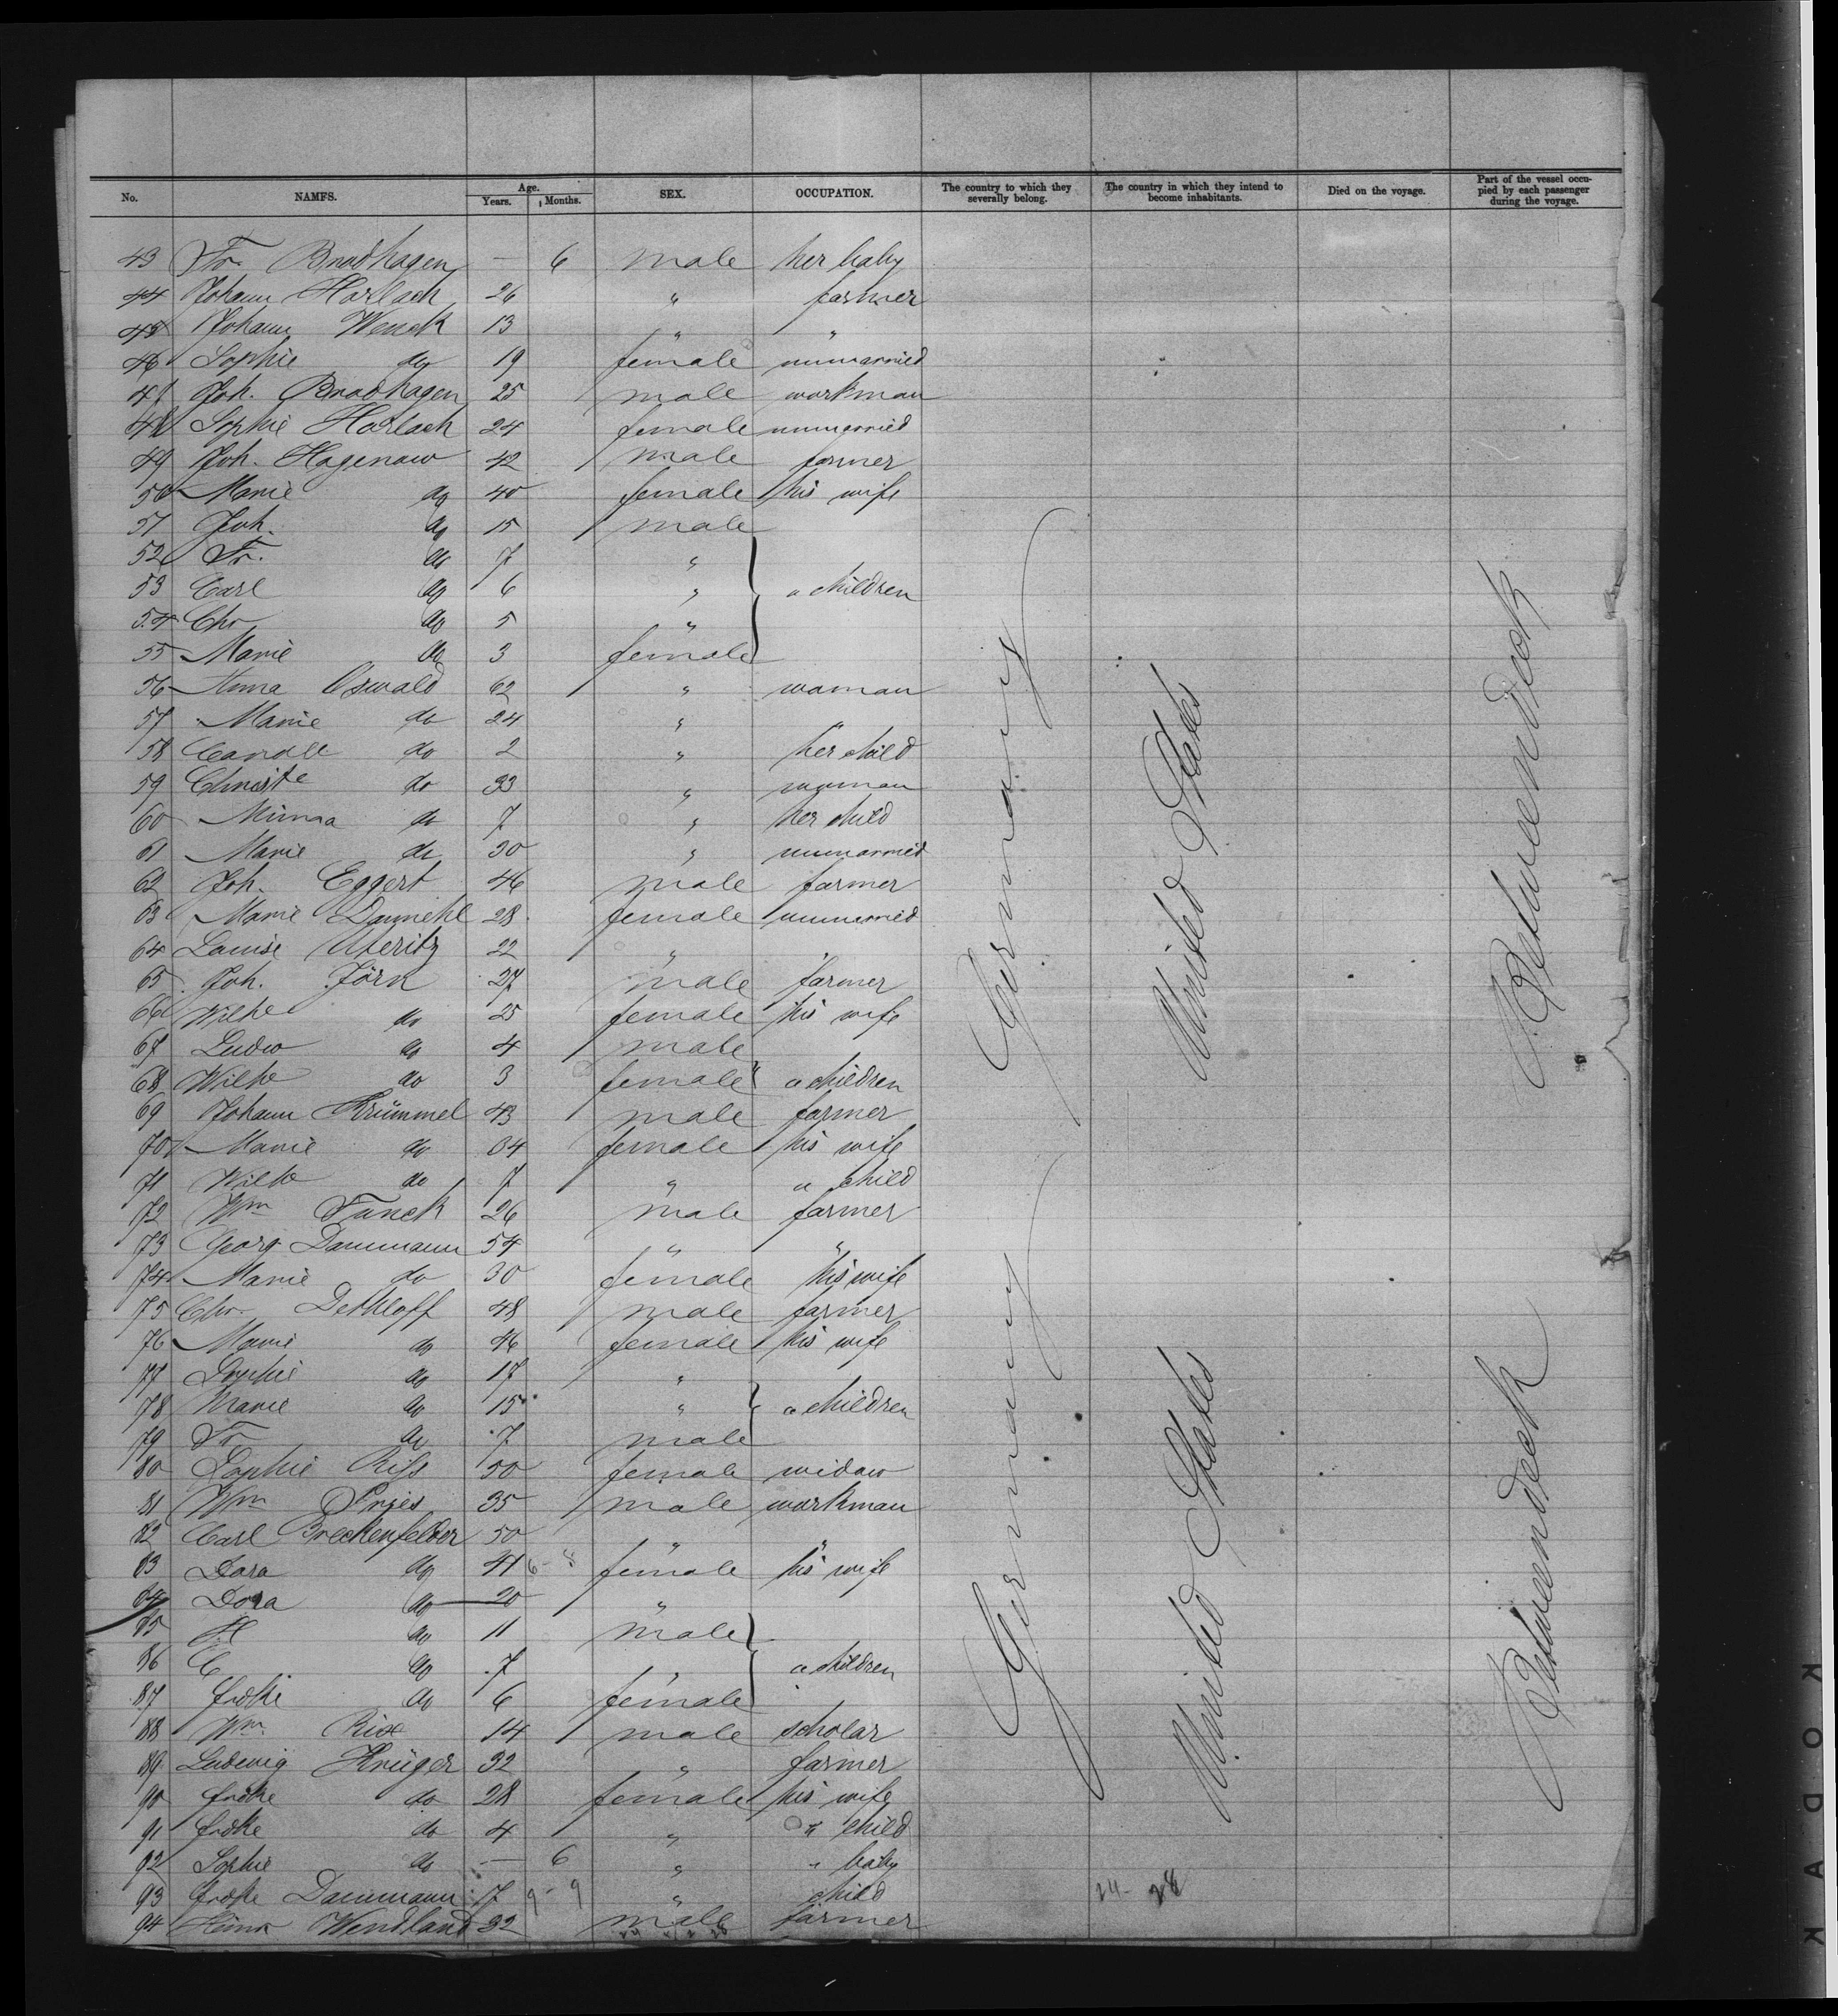 No. NAMES. Age. Years. Months. SEX. OCCUPATION. The country to which they severally belong. The country in which they intend to become inhabitants. Died on the voyage. Part of the vessel occupied by each passenger during the voyage.
43 Fr. Bradhagen — 6 male her baby
44 Johann Harlach 26 " farmer
45 Johann Wenck 13 " "
46 Sophie do 19 female unmarried
47 Joh. Bradhagen 25 male workman
48 Sophie Harlach 24 female unmarried
49 Joh. Hagenow 42 male farmer
50 Marie do 40 female his wife
51 Joh. do 15 male
52 Fr. do 7 "
53 Carl do 6 " " children
54 Chr do 5 "
55 Marie do 3 female
56 Anna Oswald 62 " woman
57 Marie do 24 "
58 do 2 " her child
59 Christe do 33 " woman
60 Minna do 7 " her child
61 Marie do 30 " unmarried
62 Joh. Eggert 46 male farmer
63 Marie Danniehl 28 female unmarried
64 Louise 22 " "
65 Joh. Jörn 27 male farmer
66 Wilhe do 25 female his wife
67 Ludw do 4 male
68 Wilhe do 3 female " children
69 Johann Krümmel 43 male farmer
70 Marie do 34 female his wife
71 Wilhe do 7 " " child
72 Wm Funck 26 male farmer
73 Georg Dammann 54 " "
74 Marie do 30 female his wife
75 Chr. Dethloff 48 male farmer
76 Marie do 46 female his wife
77 Sophie do 17 "
78 Marie do 15 " " children
79 Fr do 7 male
80 Sophie 50 female widow
81 Wm Pries 35 male workman
82 Carl Breckenfelder 50 " "
83 Dora do 41 female his wife
84 Dora do 20 "
85 H do 11 male
86 C do 7 " " children
87 Fridke do 6 female
88 Wm. Rix 14 male scholar
89 Ludwig Krüger 32 " farmer
90 Fridke do 28 female his wife
91 Fridke do 4 " " child
92 Sophie do — 6 " " baby
93 Fridke Dammann 7 9 - 9 " child
94 Heinr Wendland 32 male farmer
Germany
United States
Betweendeck
Germany
United States
Betweendeck
24 - 28
KODAK